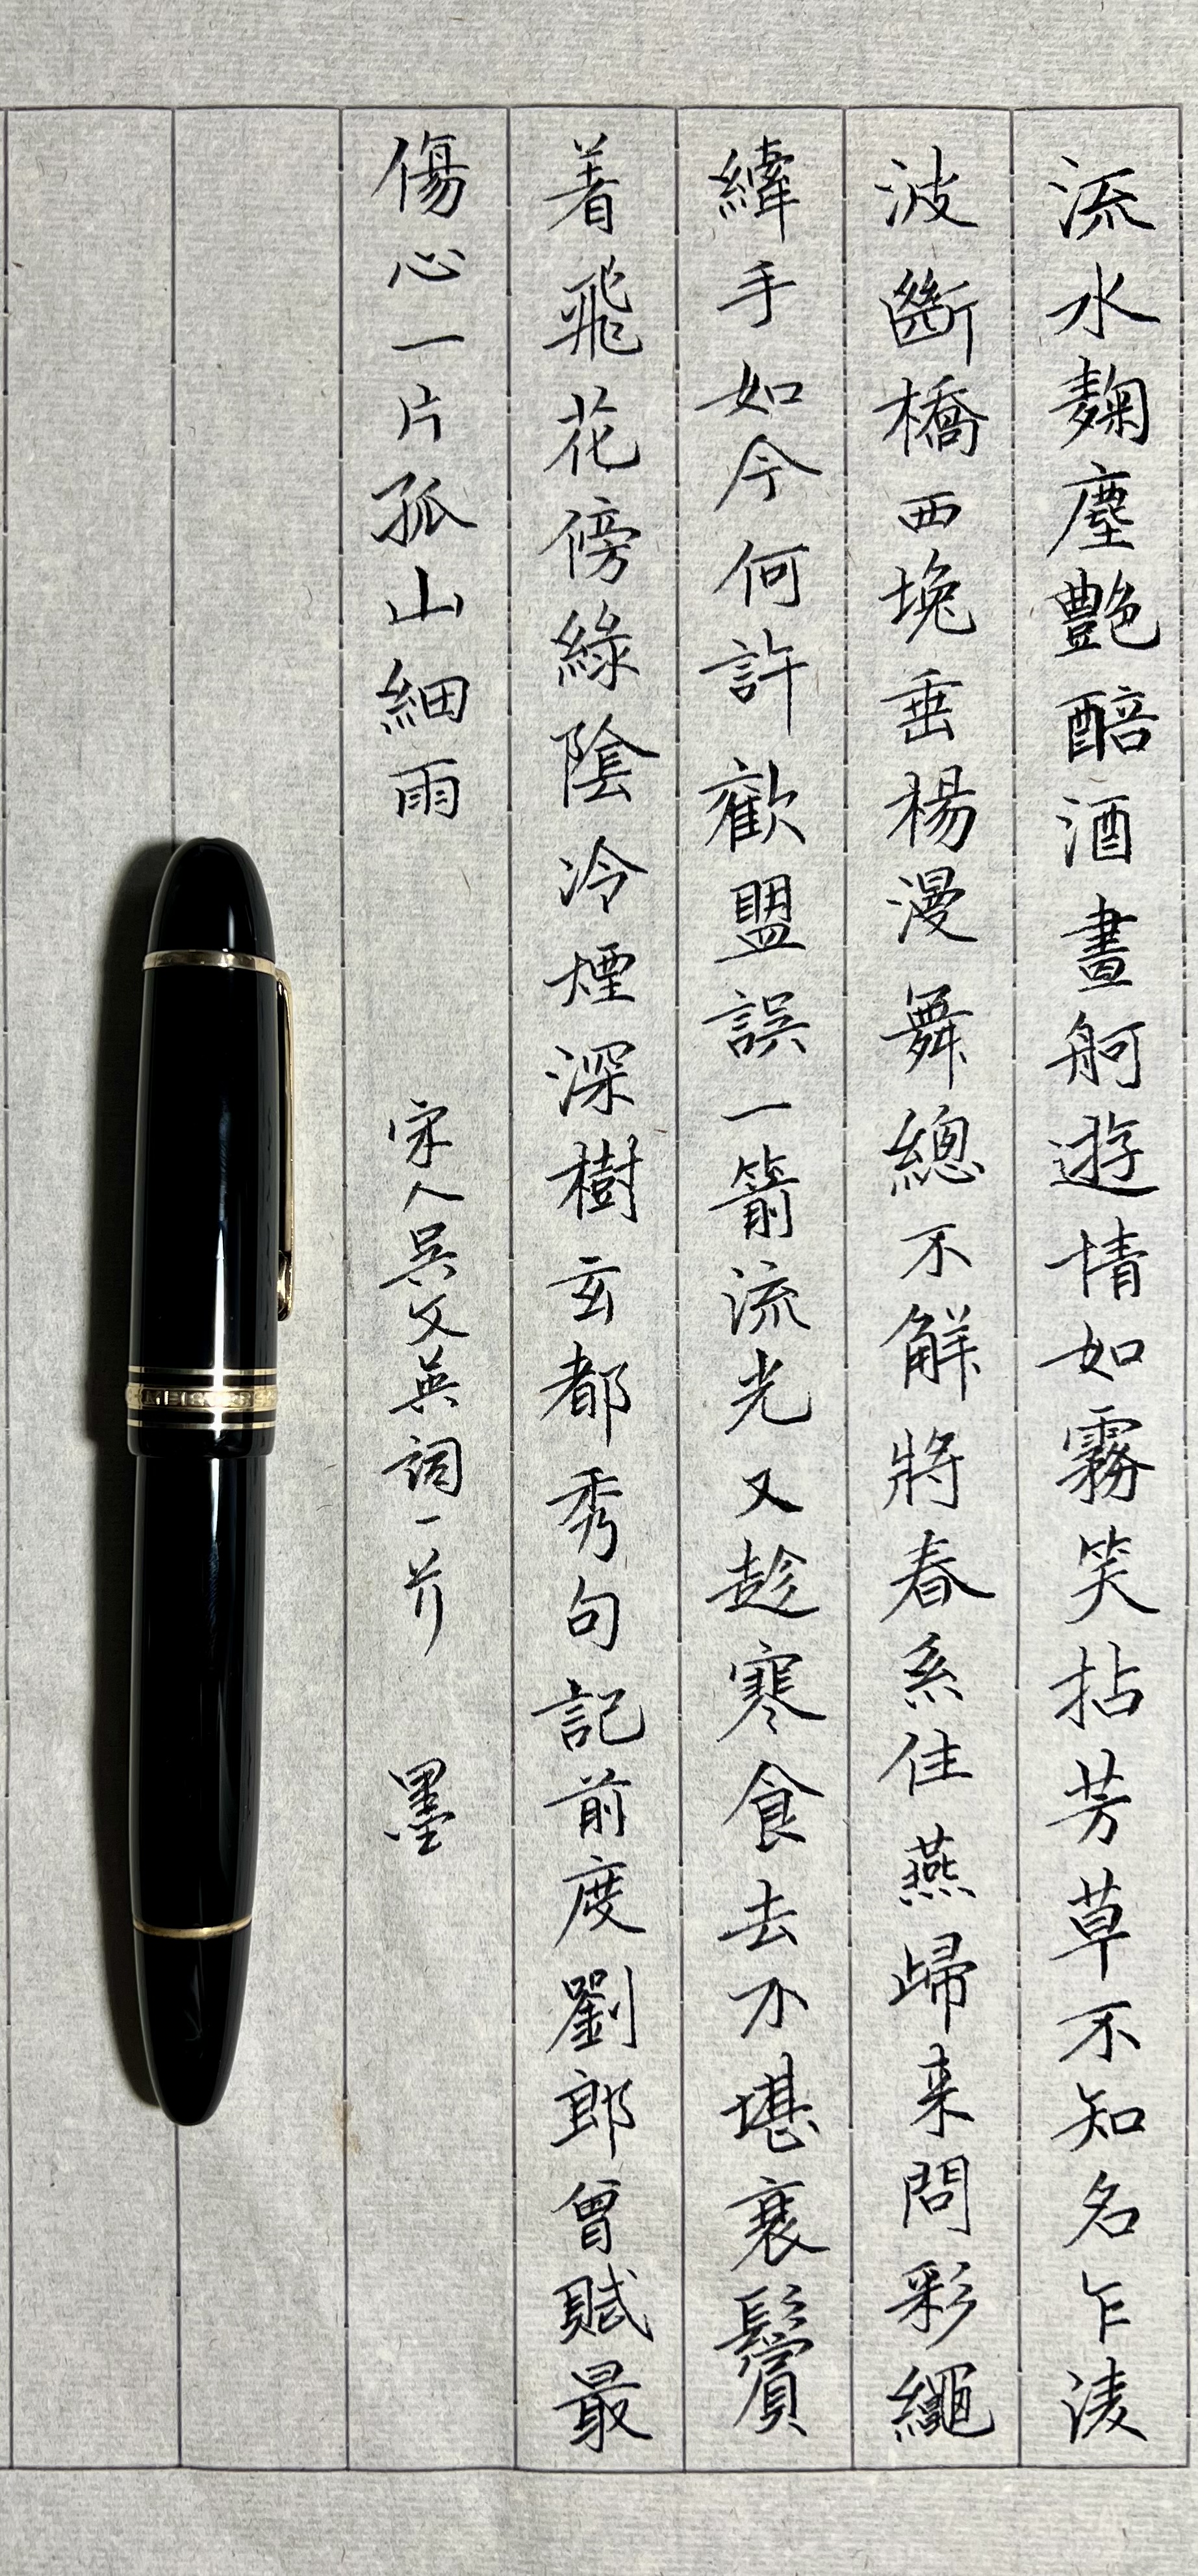 流水麴塵艷醅酒畫舸遊情如霧笑拈芳草不知名乍淩
波斷橋西堍垂楊漫舞總不解將春系住燕歸来問彩繩
緯手如今何許歡盟誤一箭流光又趁寒食去不堪衰鬢
着飛花傍綠陰冷煙深樹玄都秀句記前度劉郎曾賦最
傷心一片孤山細雨
宋人吳文英詞一首 墨